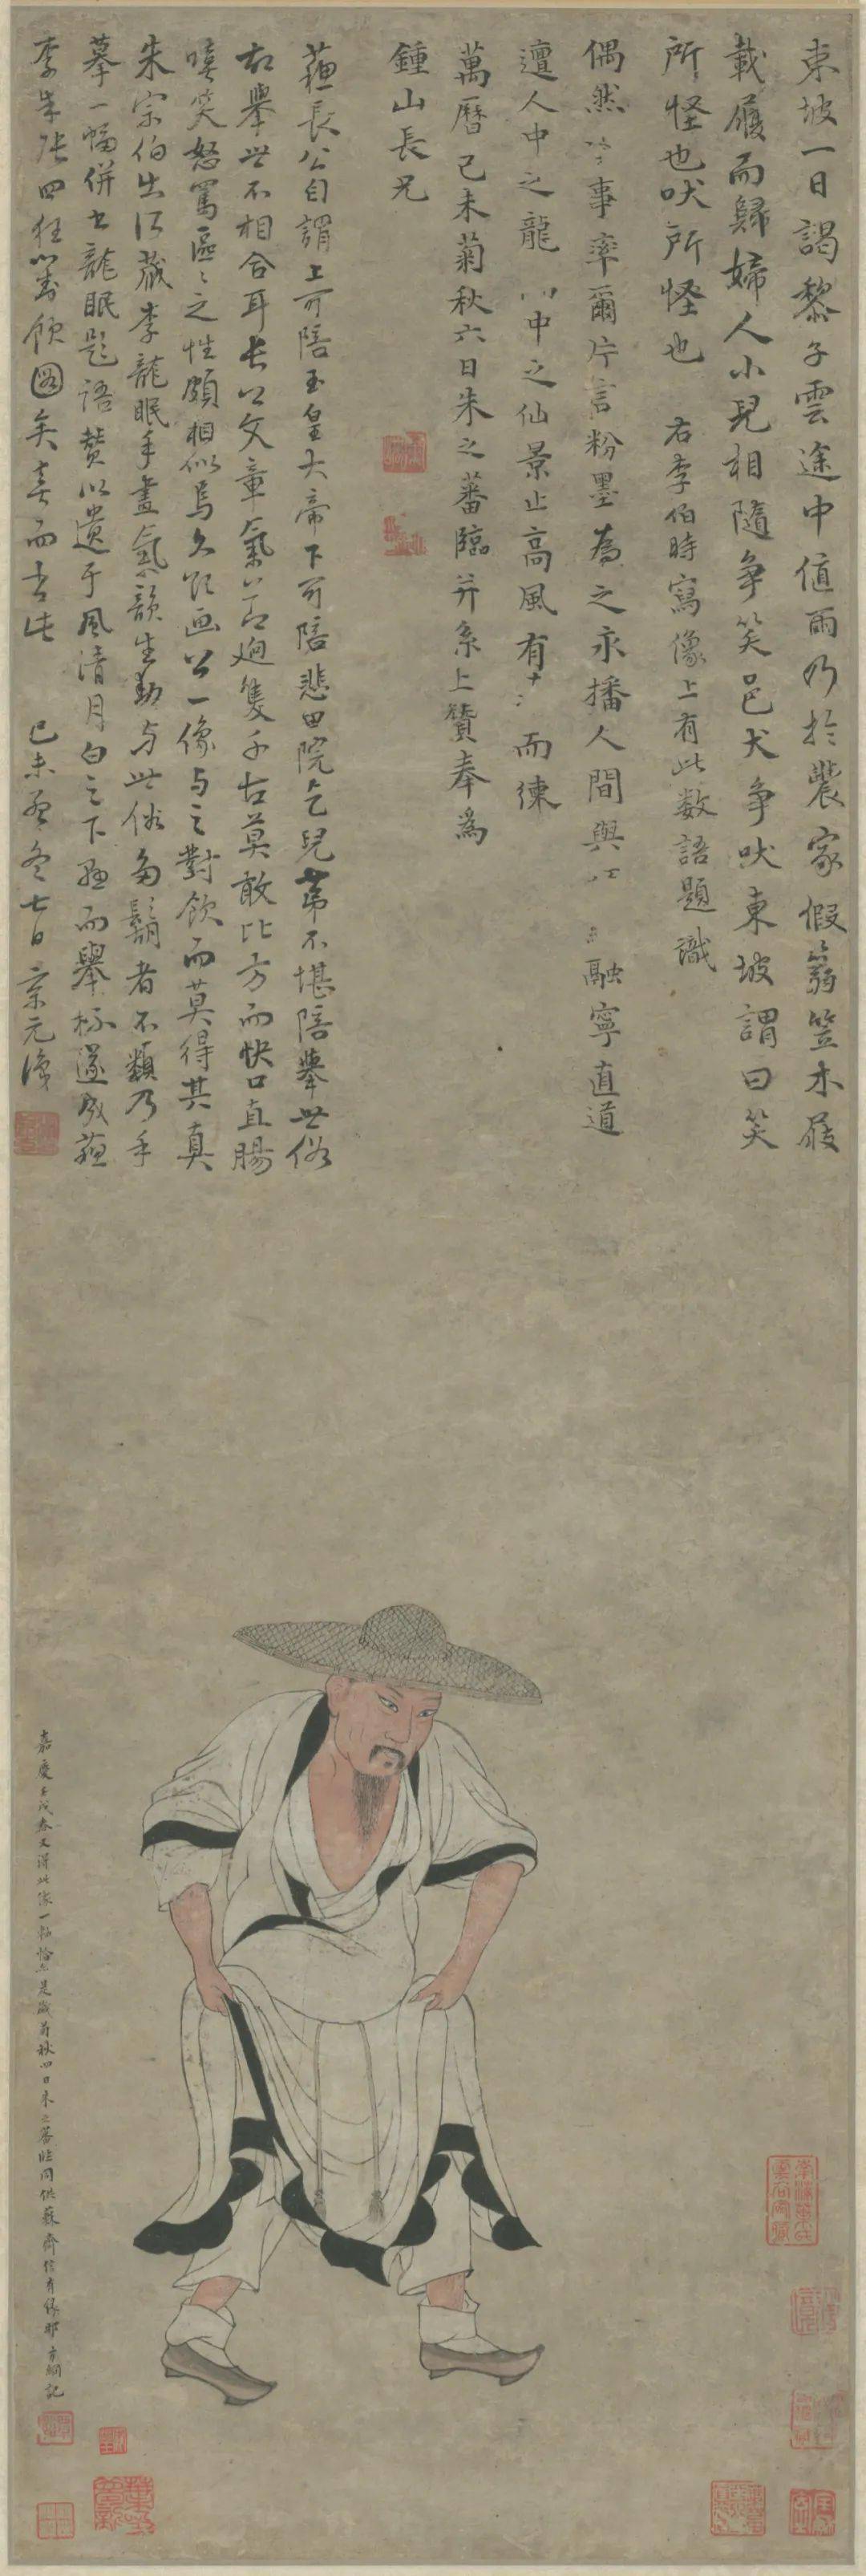 東坡一日謁黎子雲途中值雨乃於農家假箬笠木屐
載履而歸婦人小兒相隨爭笑邑犬爭吠東坡謂曰笑
所怪也吠所怪也 右李伯時寫像上有此数語題識
偶然事率爾片言粉墨為之永播人間與融寧直道
邅人中之龍中之仙景止高風有而悚
萬曆己未菊秋六日朱之蕃臨并系上贊奉為
鍾山長兄
蘇長公自謂上可陪玉皇大帝下可陪悲田院乞兒第不堪陪舉世俗
舉世不相合耳長公文章氣節迥隻千古莫敢比方而快口直腸
嘻笑怒罵區々之性頗相似焉久欲画公一像与之對飲而莫得其真
朱宗伯出所藏李龍眠手畫氣韻生動与世俗多鬍者不類乃手
摹一幅併書龍眠題語贊以遺于風清月白之下懸而舉杯遂成蘇
李朱張四狂對飲圖矣喜而書此 己未孟冬七日元
嘉慶壬戌春又得此像一軸恰是歲菊秋四日朱之蕃臨同供蘇齋信有緣耶 方綱記